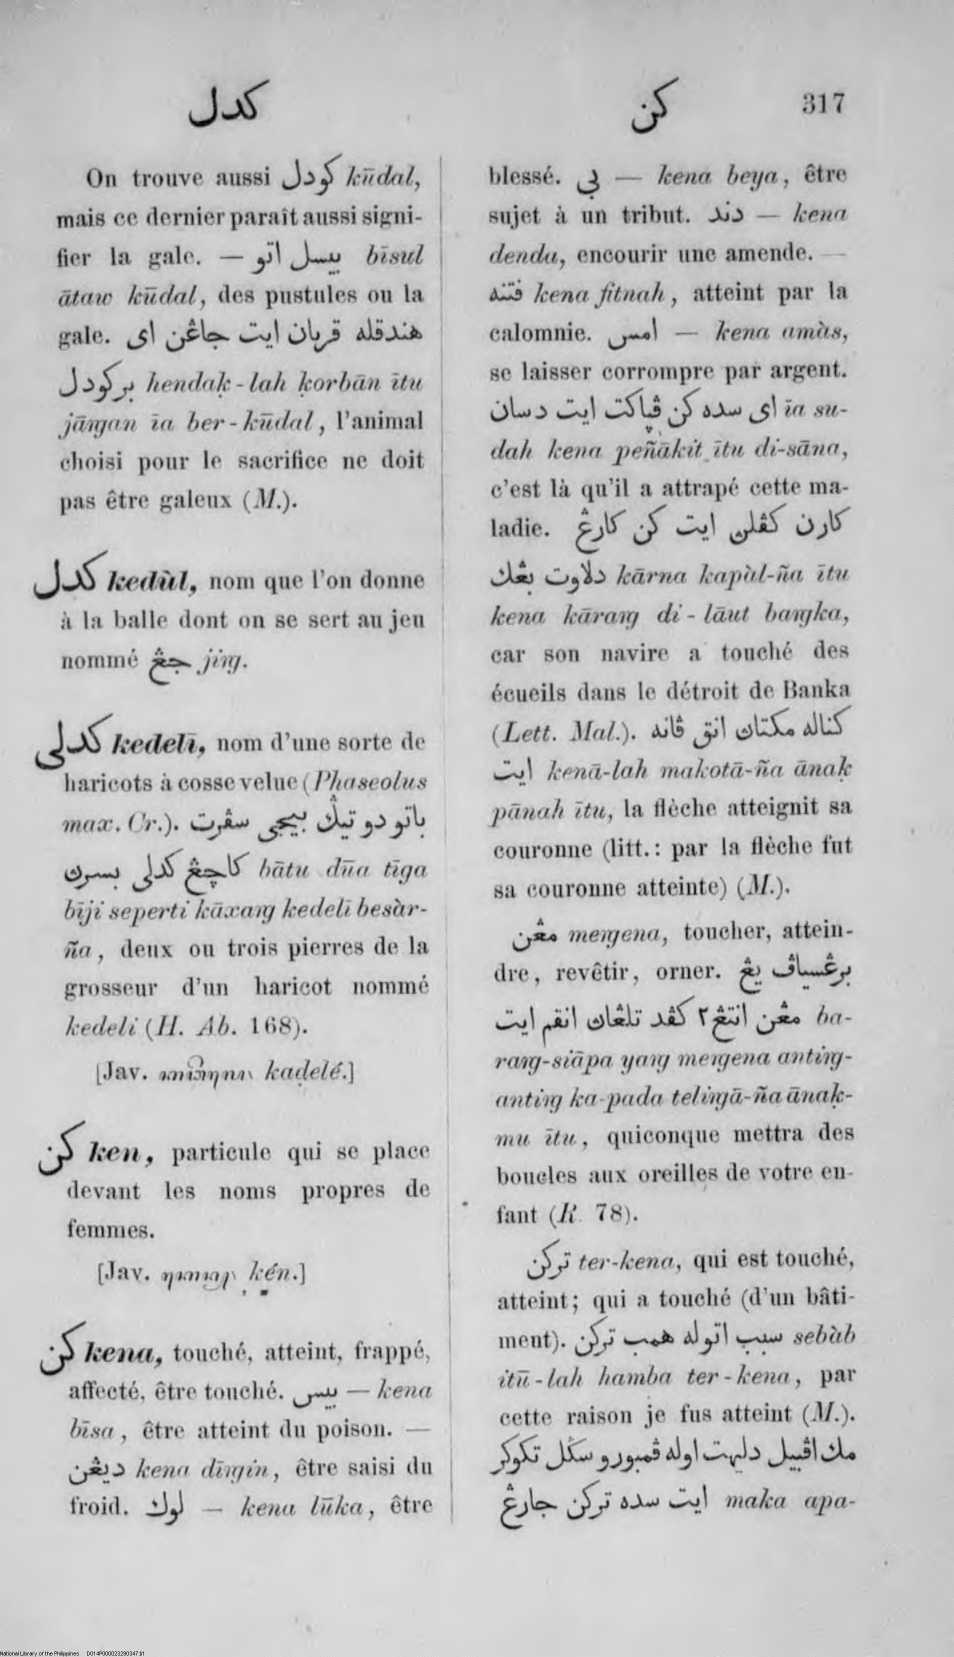 كدل
كن
317
On trouve aussi كودل kūdal,
mais ce dernier paraît aussi signi-
fier la gale. — بيسل اتو bīsul
ātaw kūdal, des pustules ou la
gale. هندقله قربان ايت جاڠن اى
بركودل hendaḳ-lah ḳorbān ītu
jāṅgan īa ber-kūdal, l'animal
choisi pour le sacrifice ne doit
pas être galeux (M.).
كدل kedùl, nom que l'on donne
à la balle dont on se sert au jeu
nommé جڠ jiṅg.
كدلي kedelī, nom d'une sorte de
haricots à cosse velue (Phaseolus
max. Cr.). باتو دو تيݢ بيجي سڤرت
كاچڠ كدلي بسرن bātu dūa tīga
bīji seperti kāxaṅg kedelī besàr-
ña, deux ou trois pierres de la
grosseur d'un haricot nommé
kedeli (H. Ab. 168).
[Jav. kaḍelé.]
كن ken, particule qui se place
devant les noms propres de
femmes.
[Jav. kén.]
كن kena, touché, atteint, frappé,
affecté, être touché. بيس — kena
bīsa, être atteint du poison. —
ديڠن kena dīṅgin, être saisi du
froid. لوك — kena lūka, être
blessé. بي — kena beya, être
sujet à un tribut. دند — kena
denda, encourir une amende. —
فتنه kena fitnah, atteint par la
calomnie. امس — kena amàs,
se laisser corrompre par argent.
اى سده كن ڤپاكت ايت دسان īa su-
dah kena peñākit ītu di-sāna,
c'est là qu'il a attrapé cette ma-
ladie. كارن كڤلن ايت كن كارڠ
دلاوت بڠك kārna kapàl-ña ītu
kena kāraṅg di-lāut baṅgka,
car son navire a touché des
écueils dans le détroit de Banka
(Lett. Mal.). كناله مكتان انق ڤانه
ايت kenā-lah makotā-ña ānaḳ
pānah ītu, la flèche atteignit sa
couronne (litt.: par la flèche fut
sa couronne atteinte) (M.).
مڠن meṅgena, toucher, attein-
dre, revêtir, orner. برڠسياڤ يڠ
مڠن انتڠ٢ كڤد تلڠان انقم ايت ba-
raṅg-siāpa yaṅg meṅgena antiṅg-
antiṅg ka-pada teliṅgā-ña ānaḳ-
mu ītu, quiconque mettra des
boucles aux oreilles de votre en-
fant (R. 78).
تركن ter-kena, qui est touché,
atteint; qui a touché (d'un bâti-
ment). سبب اتوله همب تركن sebàb
itū-lah hamba ter-kena, par
cette raison je fus atteint (M.).
مك اڤبيل دليهت اوله ڤمبورو سݢل تكوكر
ايت سده تركن جارڠ maka apa-
National Library of the Philippines